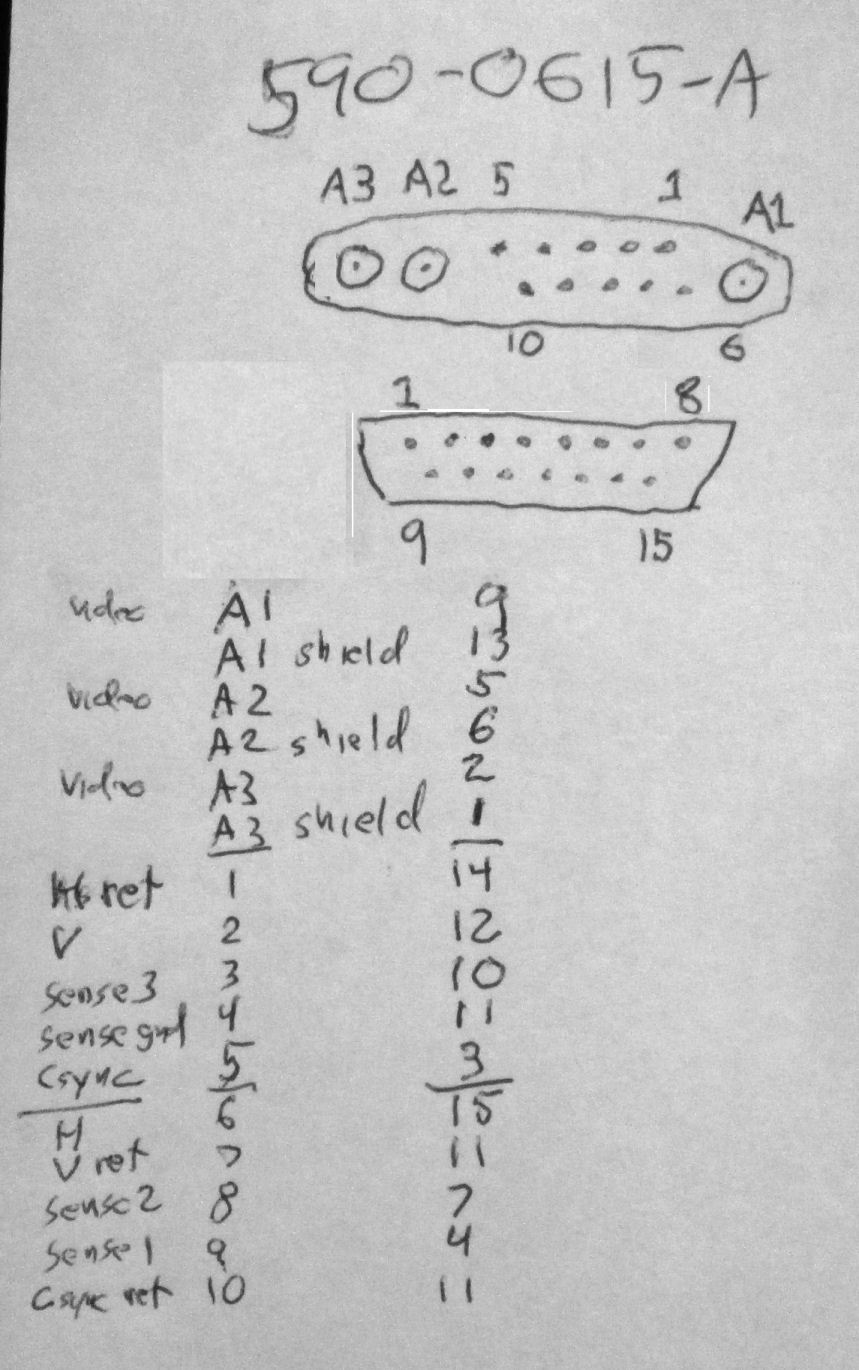 590-0615-A
A3 A2 5 1 A1
10 6
1 8
9 15
video A1 9
A1 shield 13
video A2 5
A2 shield 6
video A3 2
A3 shield 1
ret 1 14
V 2 12
sense3 3 10
sense gnd 4 11
Csync 5 3
H 6 15
V ret 7 11
sense2 8 7
sense1 9 4
Csync ret 10 11